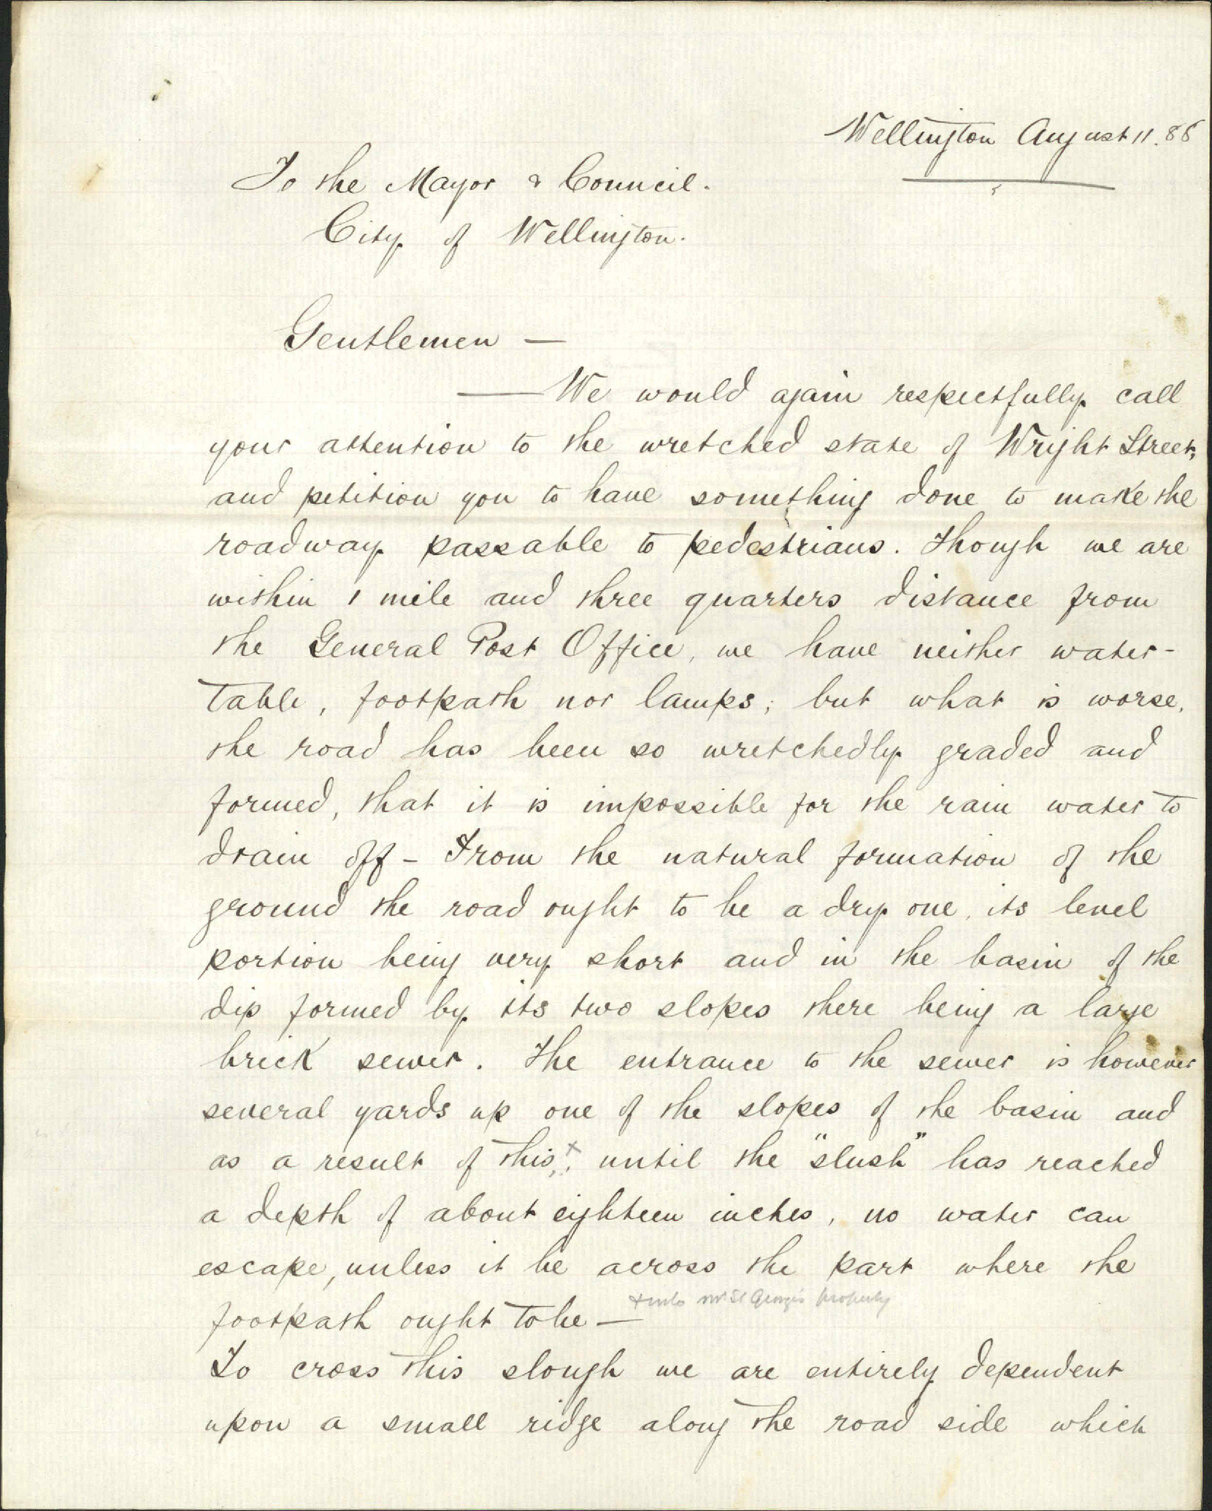 Wellington August 11. 86
To the Mayor & Council.
City of Wellington.
Gentlemen —
— We would again respectfully call
your attention to the wretched state of Wright Street,
and petition you to have something done to make the
roadway passable to pedestrians. Though we are
within 1 mile and three quarters distance from
the General Post Office, we have neither water-
table, footpath nor lamps; but what is worse,
the road has been so wretchedly graded and
formed, that it is impossible for the rain water to
drain off – From the natural formation of the
ground the road ought to be a dry one, its level
portion being very short and in the basin of the
dip formed by its two slopes there being a large
brick sewer. The entrance to the sewer is however
several yards up one of the slopes of the basin and
as a result of this,+ until the "slush" has reached
a depth of about eighteen inches, no water can
escape, unless it be across the part where the
+ into Mr St George's property
footpath ought to be —
To cross this slough we are entirely dependent
upon a small ridge along the road side which